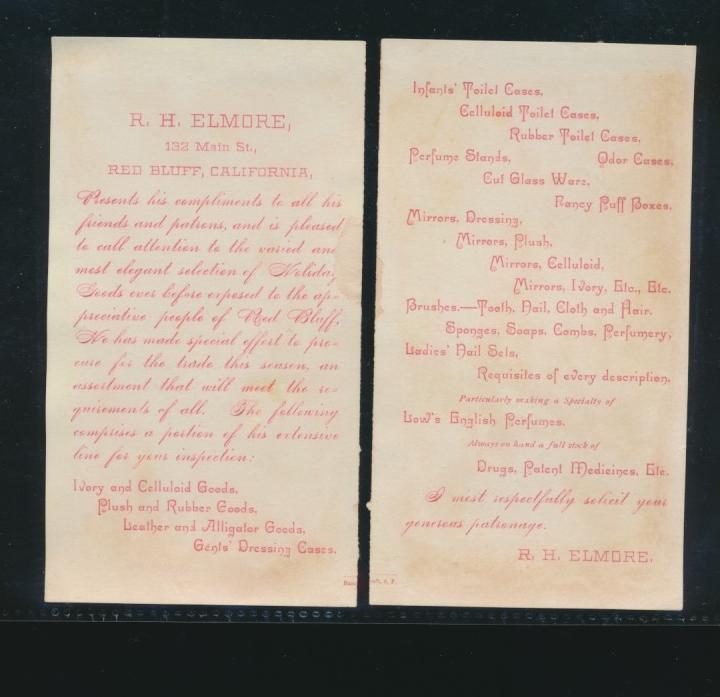 R. H. ELMORE,
132 Main St.,
RED BLUFF, CALIFORNIA,
Presents his compliments to all his
friends and patrons, and is pleased
to call attention to the varied and
most elegant selection of Holiday
Goods ever before exposed to the ap-
preciative people of Red Bluff.
He has made special effort to pro-
cure for the trade this season, an
assortment that will meet the re-
quirements of all. The following
comprises a portion of his extensive
line for your inspection:
Ivory and Celluloid Goods,
Plush and Rubber Goods,
Leather and Alligator Goods,
Gents' Dressing Cases.
Infants' Toilet Cases,
Celluloid Toilet Cases,
Rubber Toilet Cases,
Perfume Stands, Odor Cases,
Cut Glass Ware,
Fancy Puff Boxes,
Mirrors, Dressing,
Mirrors, Plush,
Mirrors, Celluloid,
Mirrors, Ivory, Etc., Etc.
Brushes.—Tooth, Nail, Cloth and Hair.
Sponges, Soaps, Combs, Perfumery,
Ladies' Nail Sets,
Requisites of every description,
Particularly making a Specialty of
Low's English Perfumes.
Always on hand a full stock of
Drugs, Patent Medicines, Etc.
I most respectfully solicit your
generous patronage.
R. H. ELMORE.
S. F.